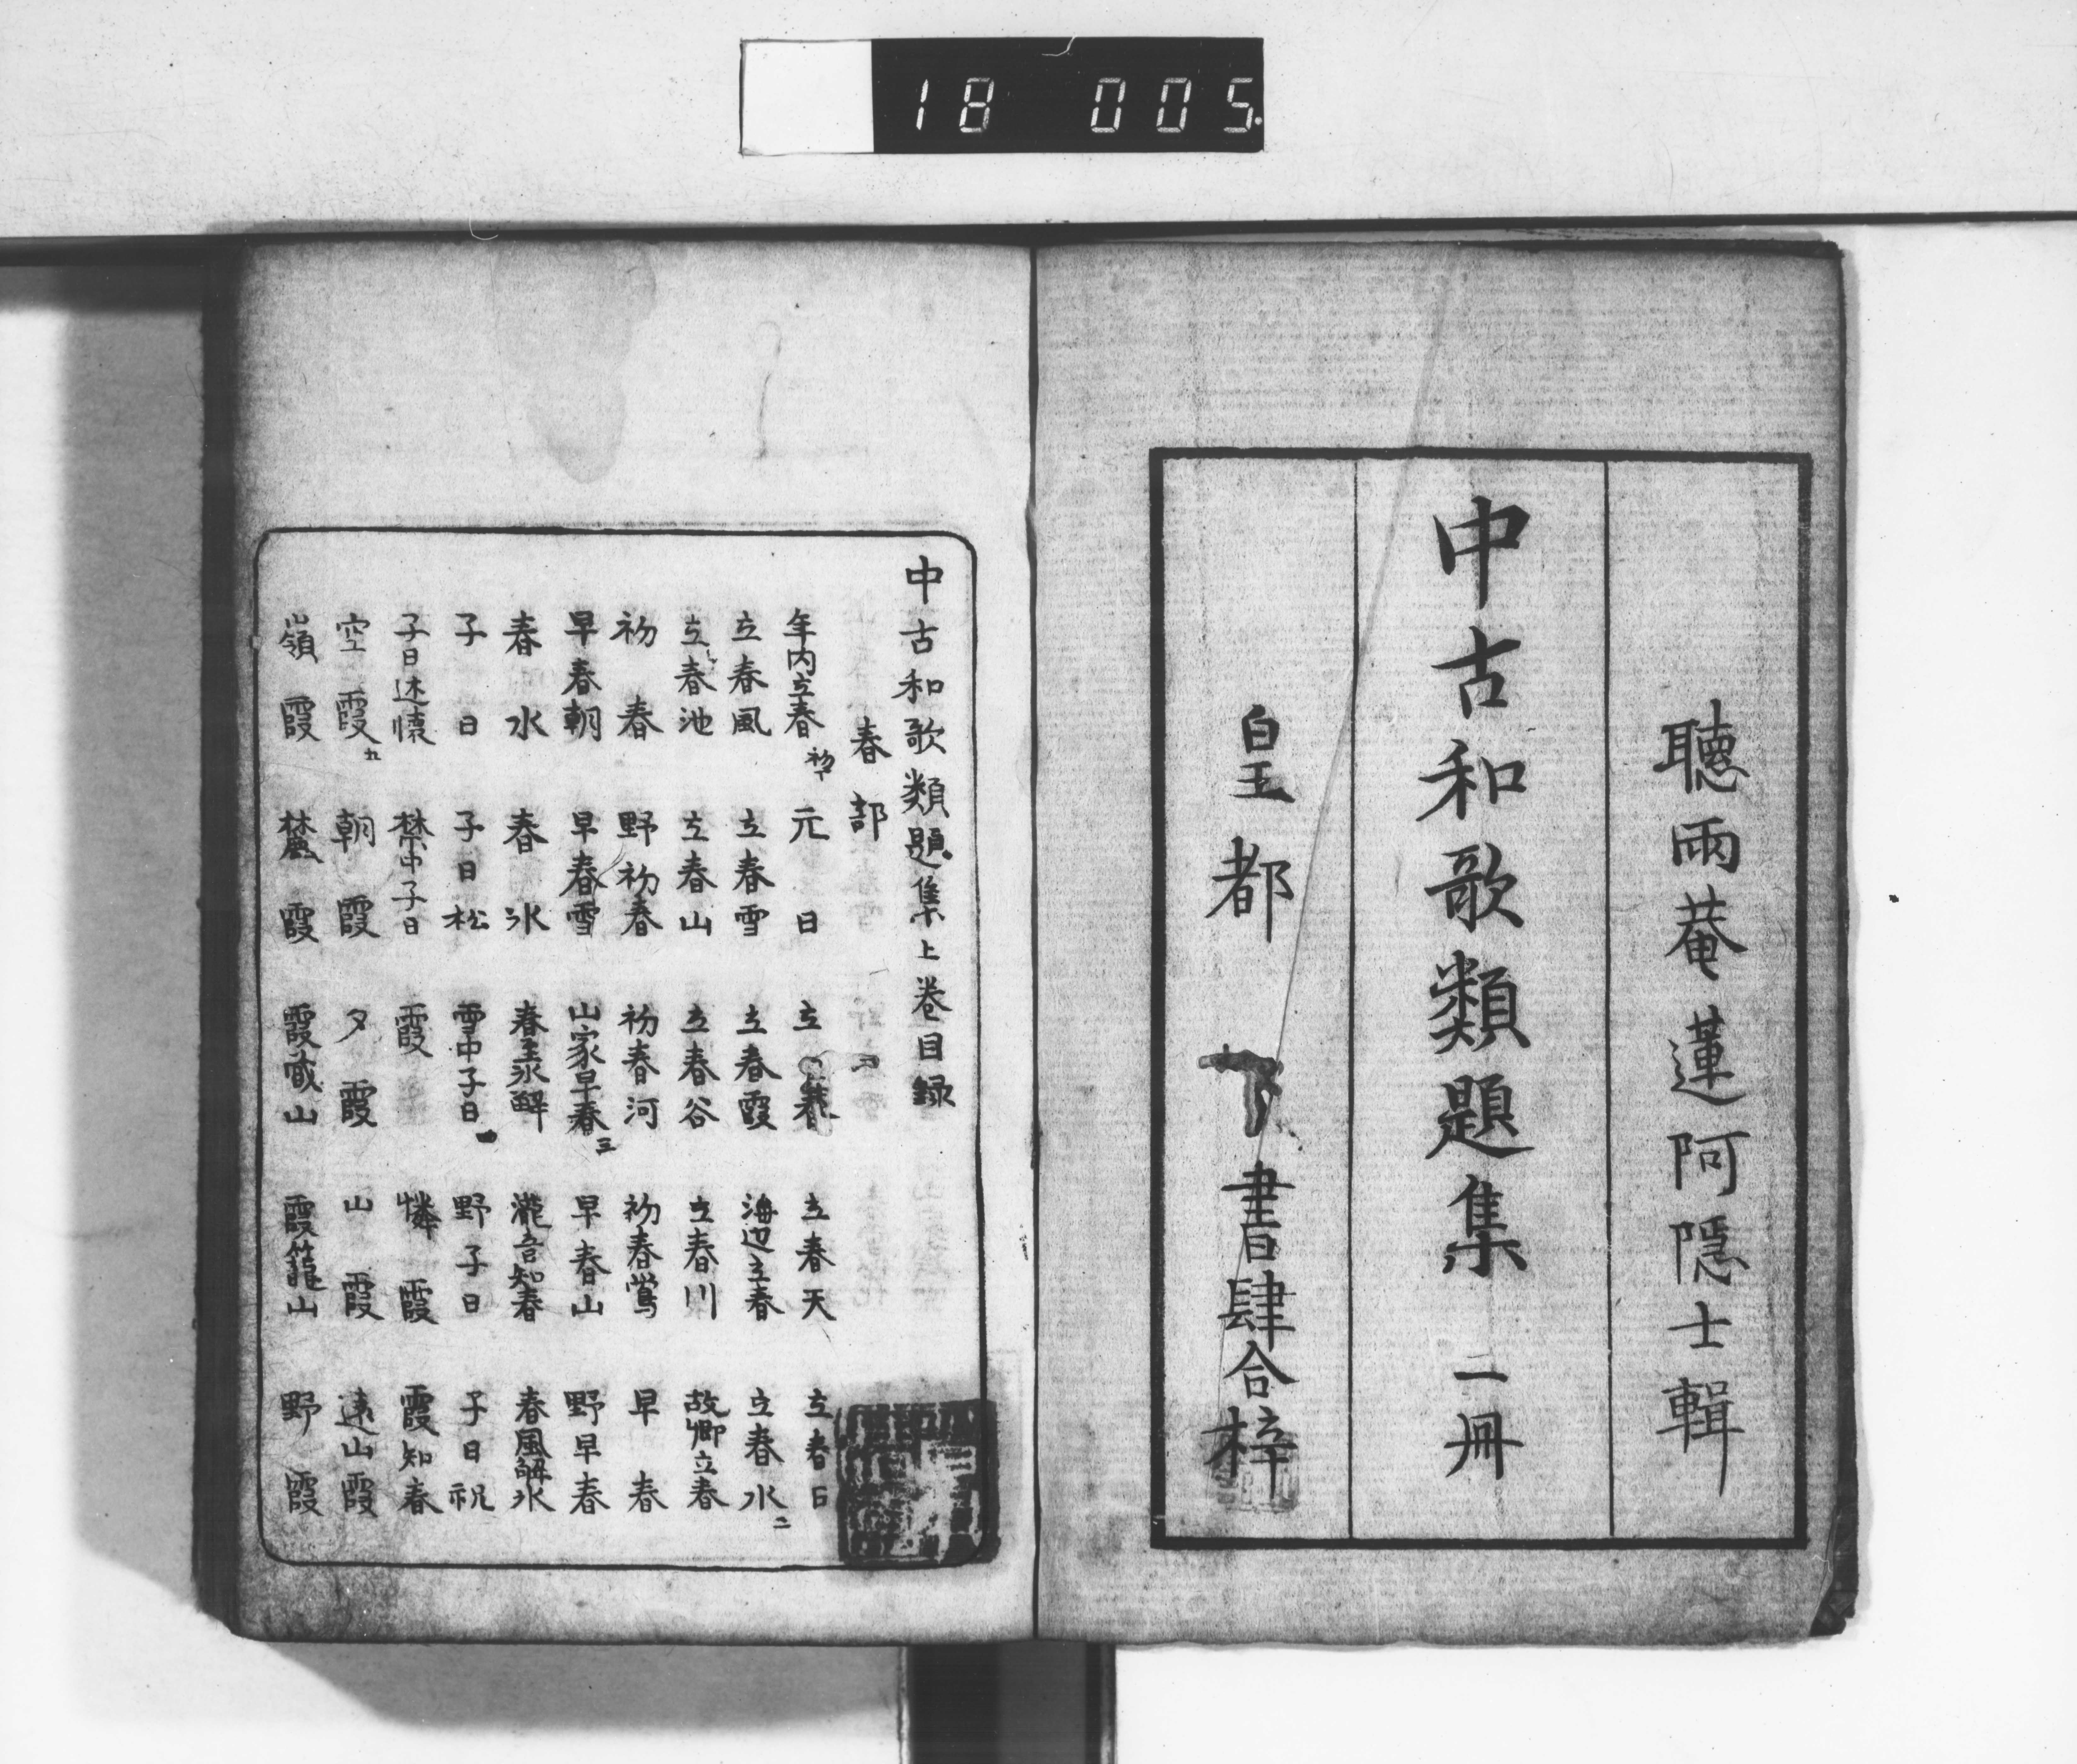 18 005
聽雨菴蓮阿隱士輯
中古和歌類題集 二冊
皇都 書肆合梓
中古和歌類題集上巻目録
春部
年内立春 初丁 元日 立春 立春天 立春日
立春風 立春雪 立春霞 海辺立春 立春水 二
立春池 立春山 立春谷 立春川 故郷立春
初春 野初春 初春河 初春鶯 早春
早春朝 早春雪 山家早春 三 早春山 野早春
春水 春氷 春来解 瀧音知春 春風解氷
子日 子日松 雪中子日 野子日 子日祝
子日述懐 禁中子日 霞 憐霞 霞知春
空霞 五 朝霞 夕霞 山霞 遠山霞
嶺霞 麓霞 霞蔵山 霞籠山 野霞